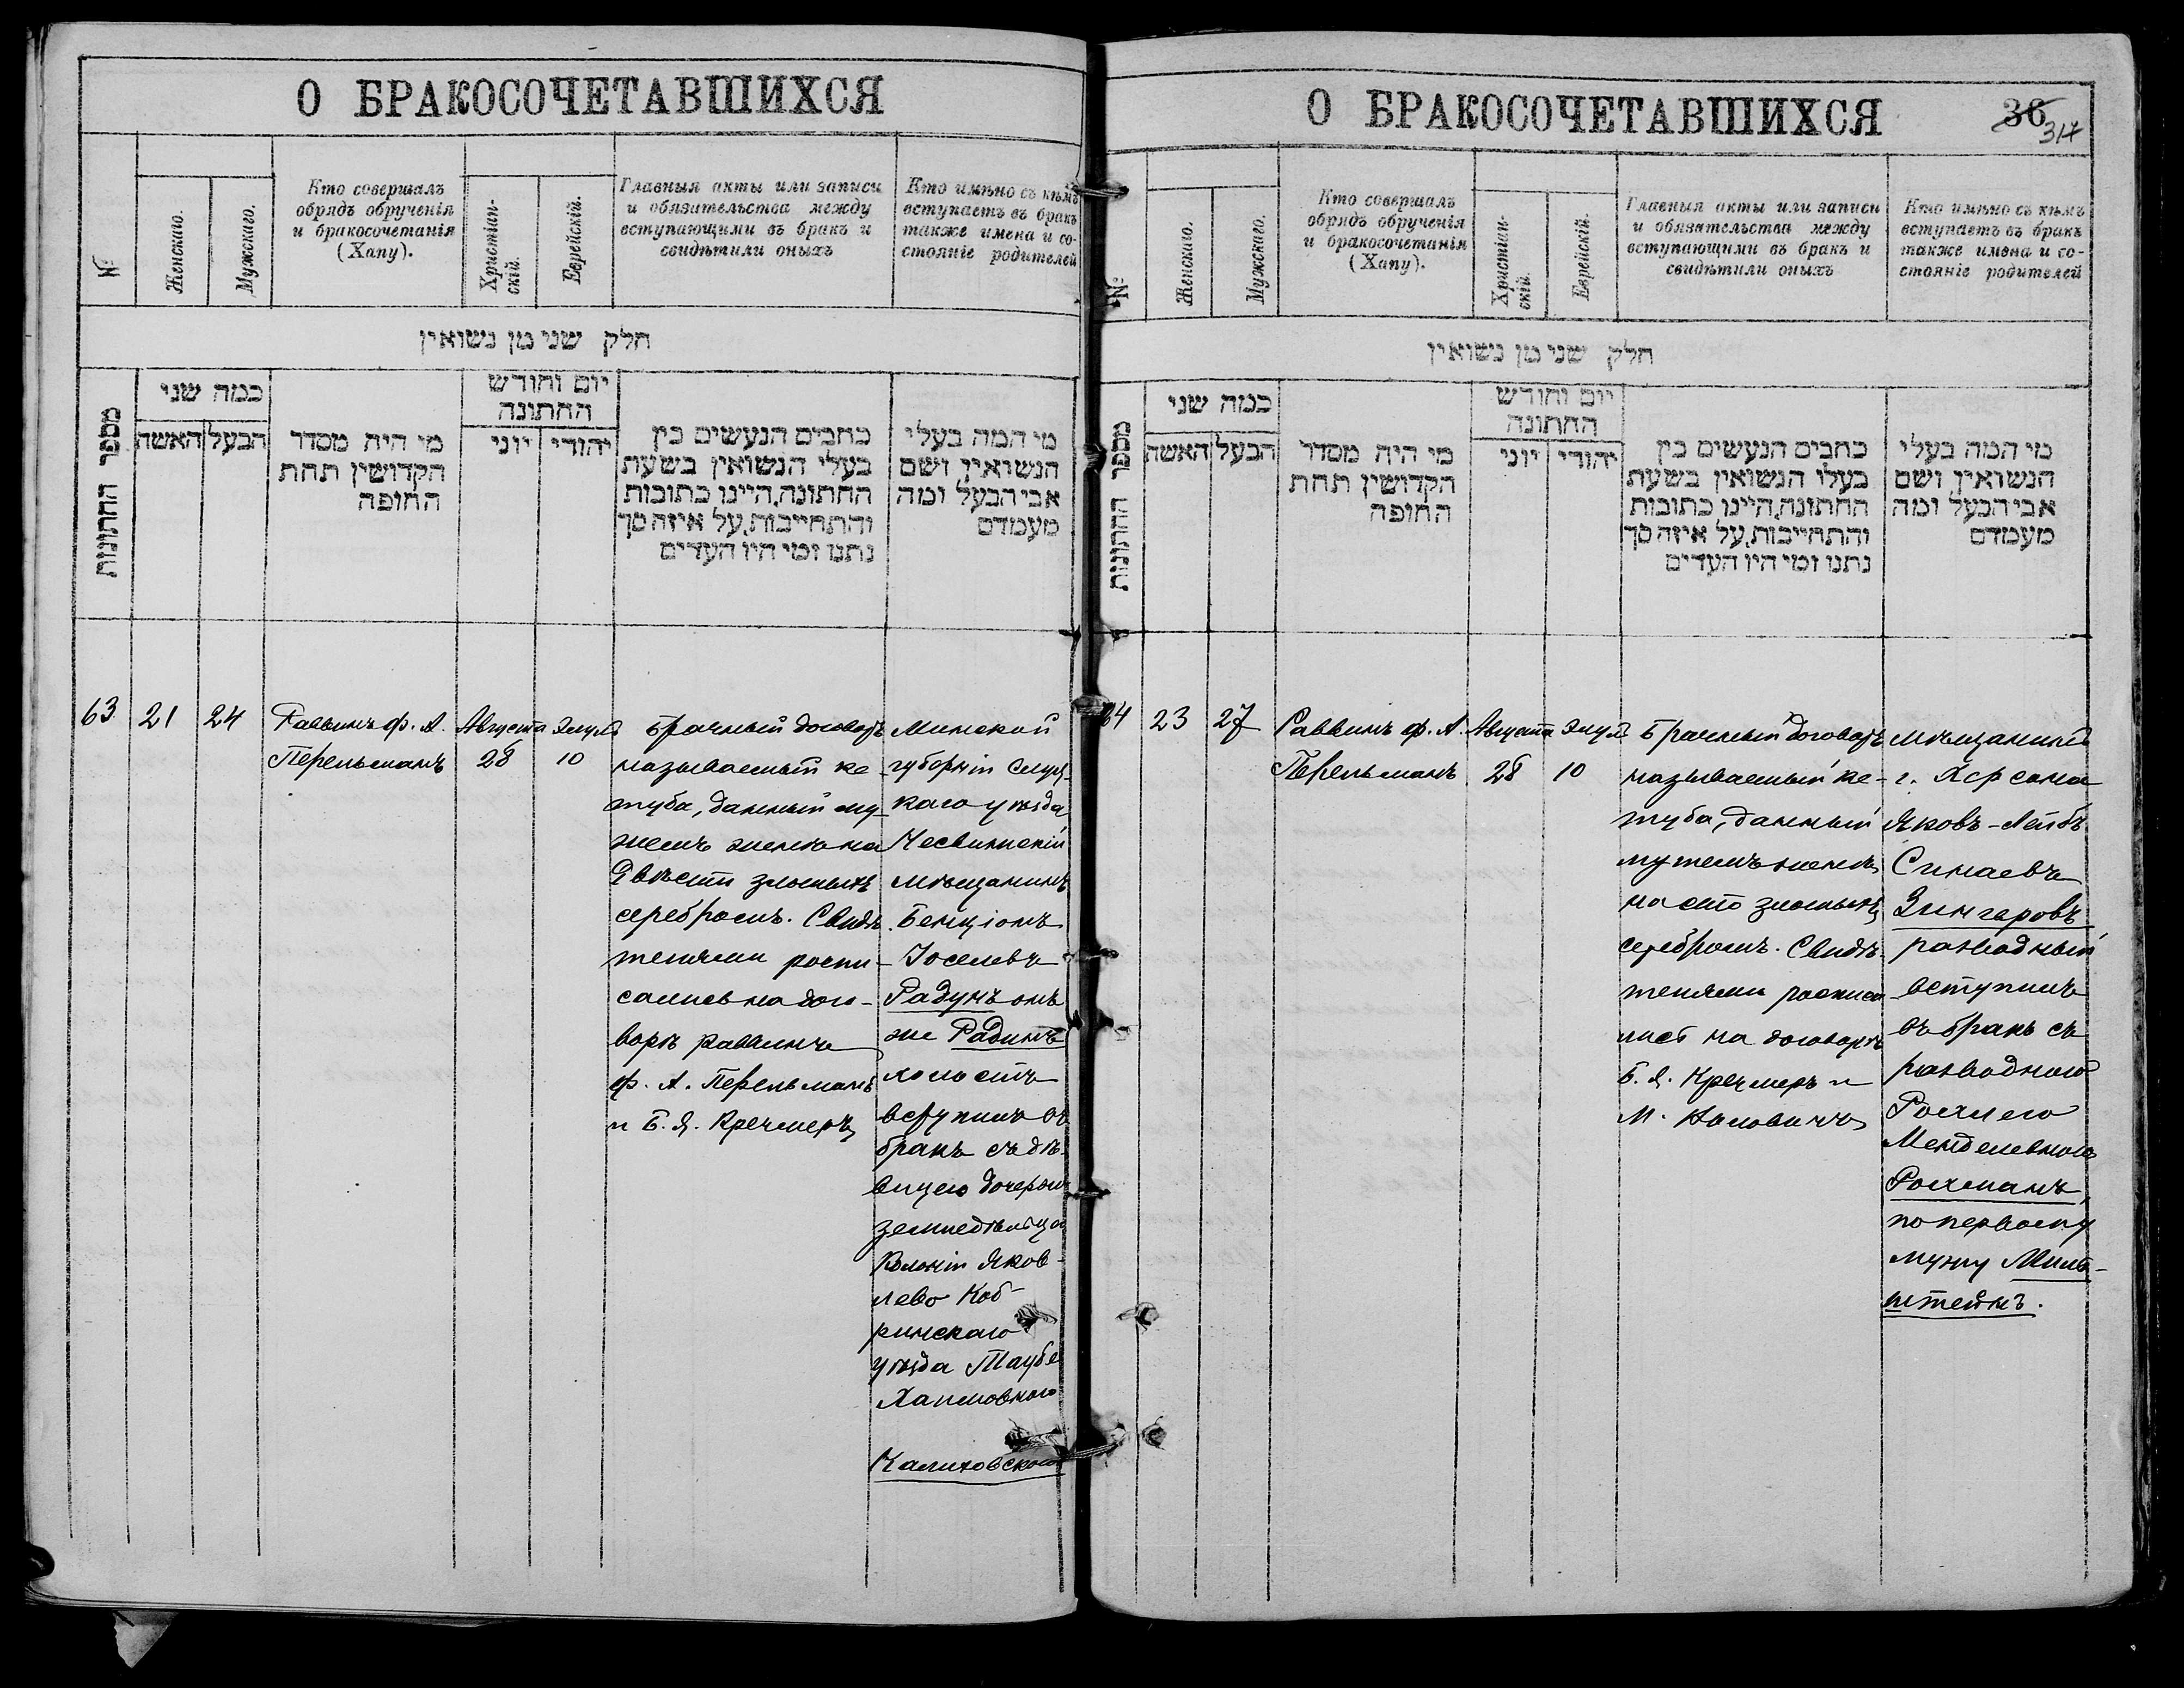 О БРАКОСОЧЕТАВШИХСЯ
№
Женскаго.
Мужскаго.
Кто совершалъ
обрядъ обрученія
и бракосочетанія
(Хапу).
Христіан-
скій.
Еврейскій.
Главныя акты или записи
и обязательства между
вступающими въ бракъ и
свидѣтили оныхъ
Кто имѣно съ кѣмъ
вступаетъ въ бракъ
также имена и со-
стояніе родителей
חלק שני מן נשואין
מספר החתונות
כמה שני
האשה
הבעל
מי היה מסדר
הקדושין תחת
החופה
יום וחודש
החתונה
יוני
יהודי
כתבים הנעשים בין
בעלי הנשואין בשעת
החתונה, היינו כתובות
והתחייבות, על איזה סך
נתנו ומי היו העדים
מי המה בעלי
הנשואין ושם
אבי הבעל ומה
מעמדם
63
21
24
Раввинъ ф. А.
Перельманъ
Августа
28
Элулъ
10
Брачный договоръ
называемый ке-
туба, данный му-
жемъ женѣ на
Двѣсти злотыхъ
серебромъ. Свидѣ-
телями роспи-
сались на дого-
ворѣ раввинъ
ф. А. Перельманъ
и Б. Я. Кречмеръ
Минской
губерніи Слуц-
каго уѣзда
Несвижскій
мѣщанинъ
Бенціонъ
Іоселевъ
Радунъ онъ
же Радинъ
холостъ
вступилъ въ
бракъ съ дѣ-
вицею дочерью
земледѣльца
Колоніи Яков-
лево Коб-
ринскаго
уѣзда Таубе
Хаимовною
Калиховскою
О БРАКОСОЧЕТАВШИХСЯ
36
317
№
Женскаго.
Мужскаго.
Кто совершалъ
обрядъ обрученія
и бракосочетанія
(Хапу).
Христіан-
скій.
Еврейскій.
Главныя акты или записи
и обязательства между
вступающими въ бракъ и
свидѣтили оныхъ
Кто имѣно съ кѣмъ
вступаетъ въ бракъ
также имена и со-
стояніе родителей
חלק שני מן נשואין
מספר החתונות
כמה שני
האשה
הבעל
מי היה מסדר
הקדושין תחת
החופה
יום וחודש
החתונה
יוני
יהודי
כתבים הנעשים בין
בעלי הנשואין בשעת
החתונה, היינו כתובות
והתחייבות, על איזה סך
נתנו ומי היו העדים
מי המה בעלי
הנשואין ושם
אבי הבעל ומה
מעמדם
64
23
27
Раввинъ ф. А.
Перельманъ
Августа
28
Элулъ
10
Брачный договоръ
называемый ке-
туба, данный
мужемъ женѣ
на сто злотыхъ
серебромъ. Свидѣ-
телями росписа-
лись на договорѣ
Б. Я. Кречмеръ и
М.
мѣщанинъ
г. Херсона
Яковъ-Лейбъ
Синаевъ
Зингеровъ
разводный
вступилъ
въ бракъ съ
разводною
Рохлею
Менделевною
Рохманъ,
по первому
мужу Миль-
штейнъ.